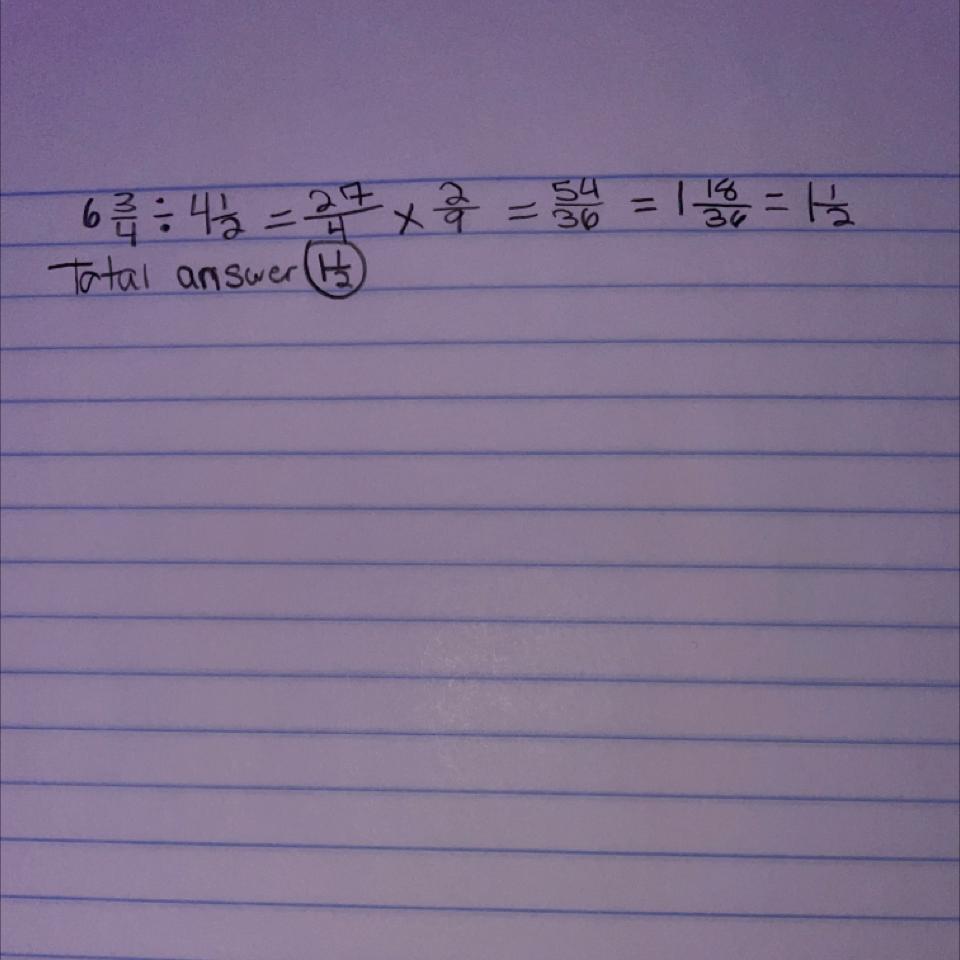 6 3/4 ÷ 4 1/2 = 27/4 × 2/9 = 54/36 = 1 18/36 = 1 1/2
Total answer 1 1/2